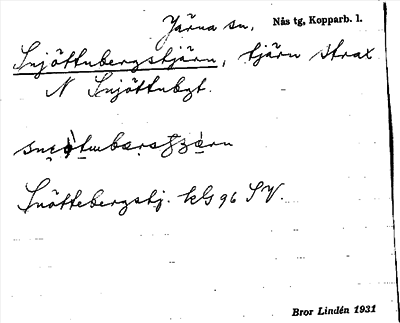 Järna sn, Nås tg, Kopparb. l.
Snjöttnbergstjärn, tjärn strax
N Snjöttnbgt.
Snöttebergstj. kG 96 SV.
Bror Lindén 1931